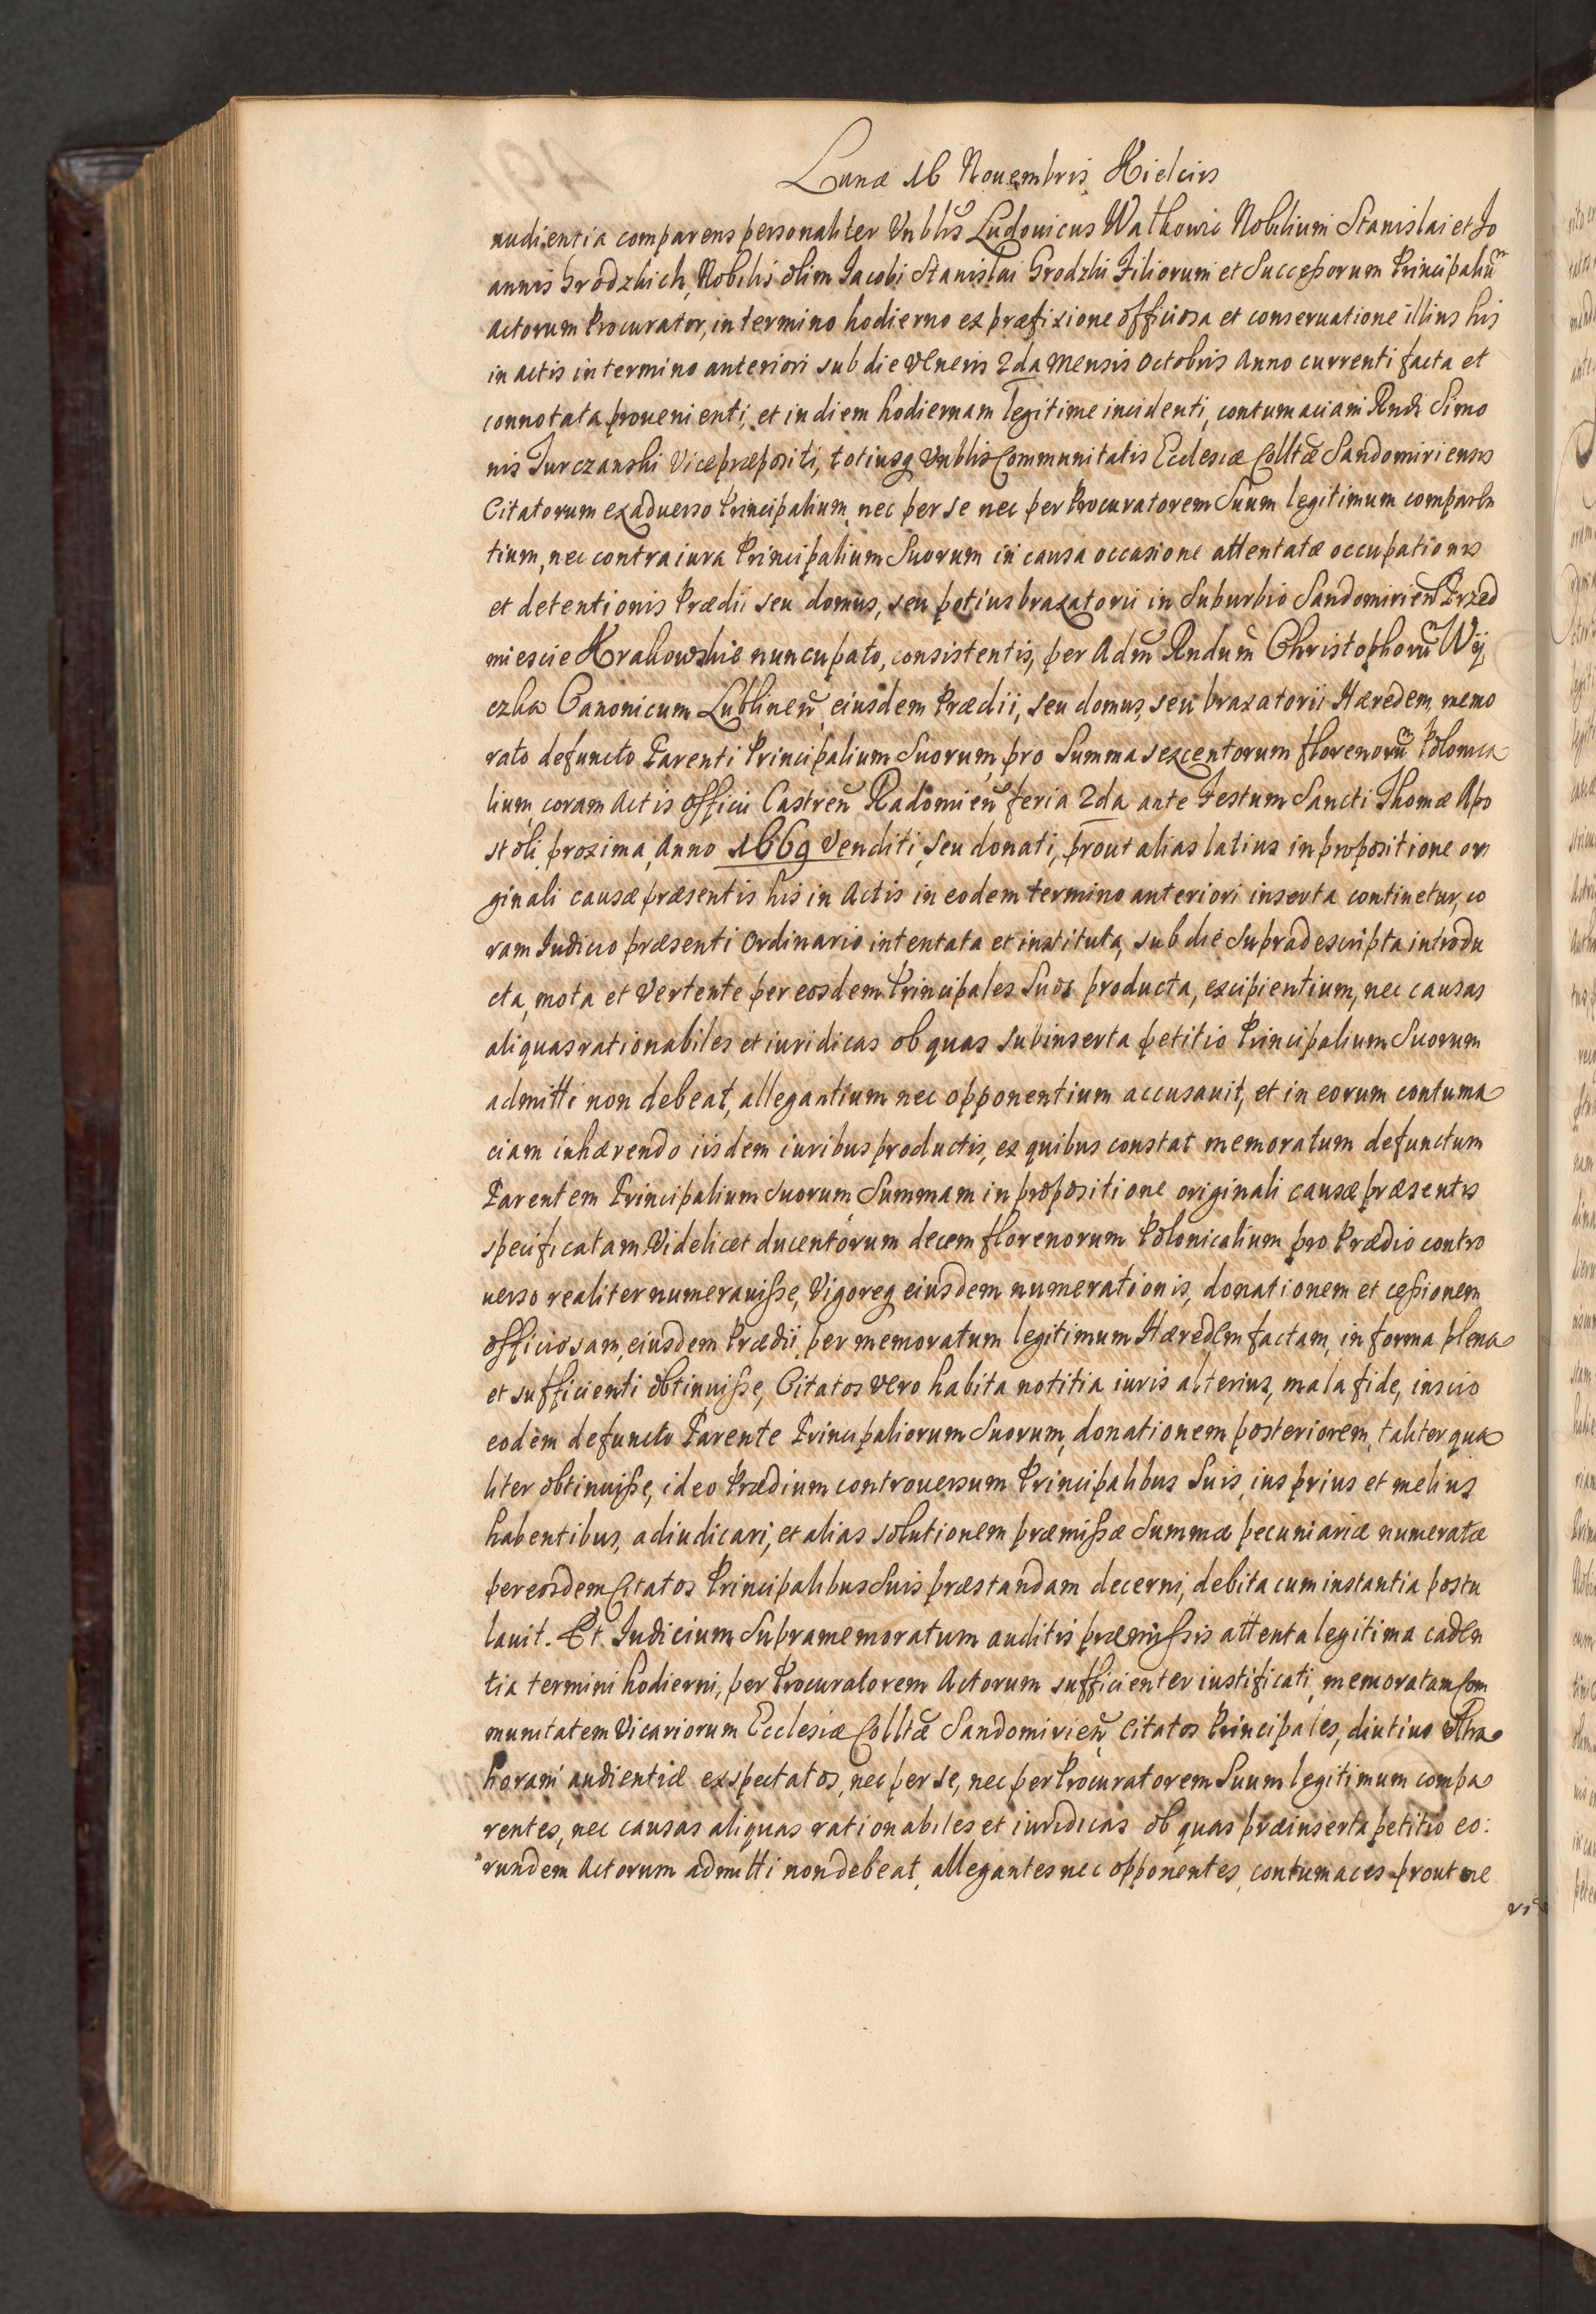 Lunæ 16 Nouembris Kielciis
audientia comparens personaliter Vnblis Ludouicus Watkowic Nobilium Stanislai et Jo
annis Grodzkich, Nobilis olim Jacobi Stanislai Grodzki Filiorum et Successorum Principaliū
Actorum Procurator, in termino hodierno ex præfixione officiosa et conseruatione illius his
in actis in termino anteriori sub die Veneris 2da Mensis Octobris Anno currenti facta et
connotata prouenienti, et in diem hodiernam legitime incidenti, contumaciam Rndi Simo
nis Jurczanski Vicepræpositi, totiusq Vnblis Communitatis Ecclesiæ Colltæ Sandomiriensis
Citatorum ex aduerso Principalium, nec per se nec per Procuratorem Suum legitimum comparen
tium, nec contra iura Principalium Suorum in causa occasione attentatæ occupationis
et detentionis Prædii seu domus, seu potius braxatorii in Suburbio Sandomirien̄ Przed
miescie Krakowskie nuncupato, consistentis, per Adm̄ Rndum̄ Christophorū Wij
czka Canonicum Lublinen̄, eiusdem Prædii, seu domus, seu braxatorii Hæredem, memo
rato defuncto Parenti Principalium Suorum, pro Summa sexcentorum florenorū Polonica
lium, coram Actis Officii Castren̄ Radomien̄ feria 2da ante Festum Sancti Thomæ Apo
stoli proxima, Anno 1669 Venditi, seu donati, prout alias latius in propositione ori
ginali causæ præsentis his in Actis in eodem termino anteriori inserta continetur, co
ram Judicio præsenti Ordinario intentata et instituta, sub die Supradescripta introdu
cta, mota et Vertente per eosdem Principales Suos producta, excipientium, nec causas
aliquas rationabiles et iuridicas ob quas subinserta petitio Principalium Suorum
admitti non debeat, allegantium nec opponentium accusauit, et in eorum contuma
ciam inhærendo iisdem iuribus productis, ex quibus constat memoratum defunctum
Parentem Principalium Suorum, Summam in propositione originali causæ præsentis
specificatam, Videlicet ducentorum decem florenorum Polonicalium pro Prædio contro
uerso realiter numerauisse, Vigoreq eiusdem numerationis, donationem et cessionem
officiosam, eiusdem Prædii, per memoratum legitimum Hæredem factam, in forma plena
et sufficienti obtinuisse, Citatos Vero habita notitia iuris alterius, mala fide, inscio
eodem defuncto Parente Principaliorum Suorum, donationem posteriorem, taliter qua
liter obtinuisse, ideo Prædium controuersum Principalibus Suis, ius prius et melius
habentibus, adiudicari, et alias solutionem præmissæ Summæ pecuniariæ numeratæ
per eosdem Citatos Principalibus Suis præstandam decerni, debita cum instantia postu
lauit. Et Judicium Supramemoratum auditis præmissis attenta legitima caden
tia termini hodierni, per Procuratorem Actorum sufficienter iustificati, memoratam Com
munitatem Vicariorum Ecclesiæ Colltæ Sandomirien̄ Citatos Principales, diutius Vltra
horam audientiæ exspectatos, nec per se, nec per Procuratorem Suum legitimum compa
rentes, nec causas aliquas rationabiles et iuridicas ob quas præinserta petitio eo:
rundem Actorum admitti non debeat, allegantes nec opponentes, contumaces prout me
ri